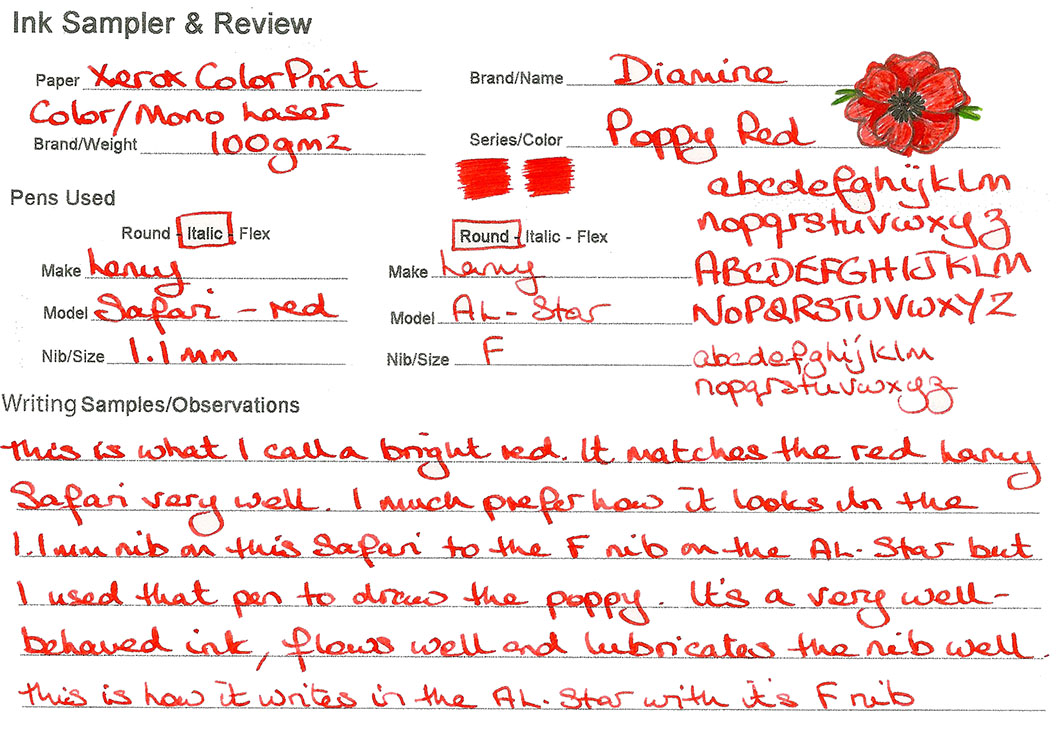 Ink Sampler & Review
Paper Xerox ColorPrint
Color/Mono Laser
Brand/Weight 100gm2
Brand/Name Diamine
Series/Color Poppy Red
Pens Used
Round - Italic - Flex
Make Lamy
Model Safari - red
Nib/Size 1.1mm
Round - Italic - Flex
Make Lamy
Model AL-Star
Nib/Size F
abcdefghijklm
nopqrstuvwxyz
ABCDEFGHIJKLM
NOPQRSTUVWXYZ
abcdefghijklm
nopqrstuvwxyz
Writing Samples/Observations
This is what I call a bright red. It matches the red Lamy
Safari very well. I much prefer how it looks in the
1.1mm nib on this Safari to the F nib on the AL-Star but
I used that pen to draw the poppy. It's a very well-
behaved ink, flows well and lubricates the nib well.
This is how it writes in the AL-Star with it's F nib